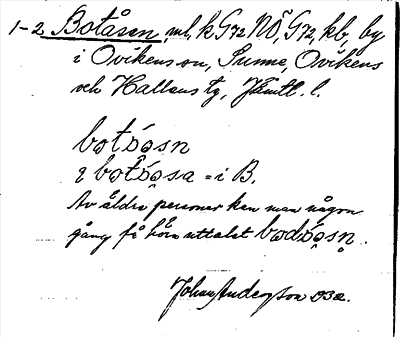 1-2 Botåsen, ml, k G72 NÖ, G72, kb, by
i Ovikens sn, Sunne, Ovikens
och Hallens tg, Jämtl. l.
botåosn
2 botåosa = i B.
Av äldre personer kan man någon
gång få höra uttalet bodåosn.
Johan Anderson 1932.